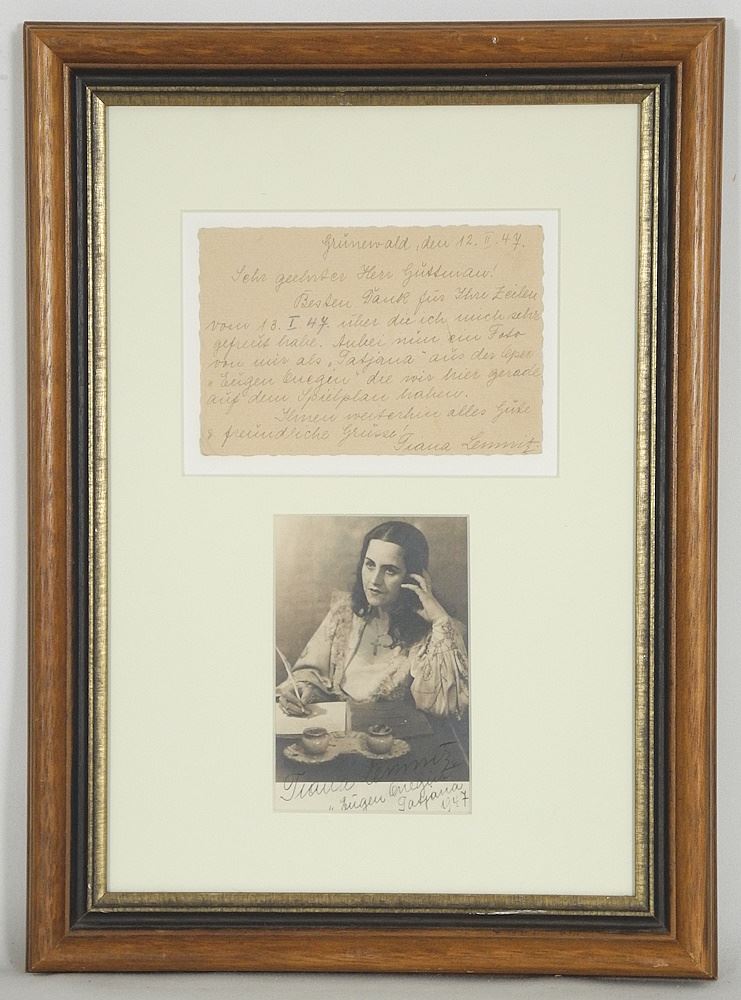 Grünewald, den 12. II. 47.
Sehr geehrter Herr Güttman!
Besten Dank für Ihre Zeilen
vom 13. I 47. über die ich mich sehr
gefreut habe. Anbei nun ein Foto
von mir als „Tatjana" aus der Oper
„Eügen Onegin" die wir hier gerade
auf dem Spielplan haben.
Ihnen weiterhin alles Güte
& freündliche Grüsse!
Tiana Lemnitz
Tiana Lemnitz
„Eügen Onegin"
Tatjana
47